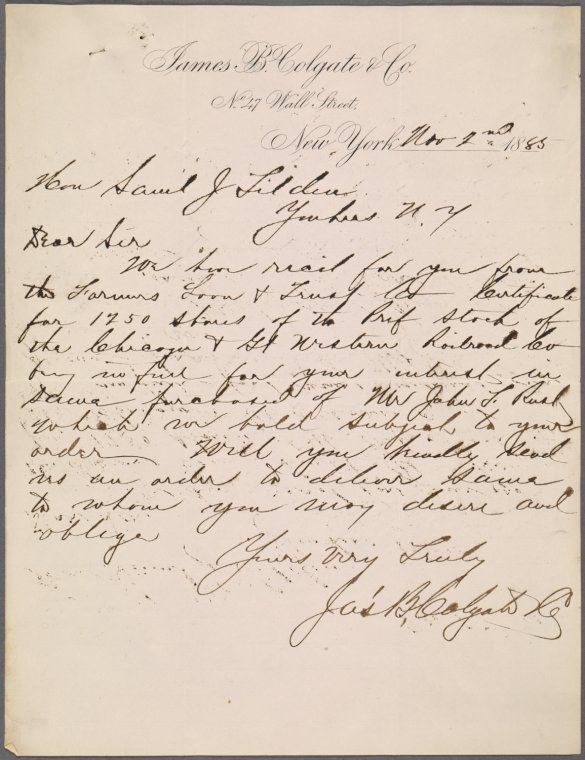 James B. Colgate & Co.
No. 47 Wall Street.
New York Nov 2nd 1885
Hon Saml J Tilden
Yonkers N. Y
Dear Sir
We have recd for you from
the Farmers Loan & Trust Co Certificate
for 1250 shares of the Prif Stock of
the Chicago & Gt Western Railroad Co
for your interest in
same purchased of Mr John F.
which we hold subject to your
order Will you kindly send
us an order to deliver same
to whom you may desire and
oblige
Yours very Truly
Jas B. Colgate & Co